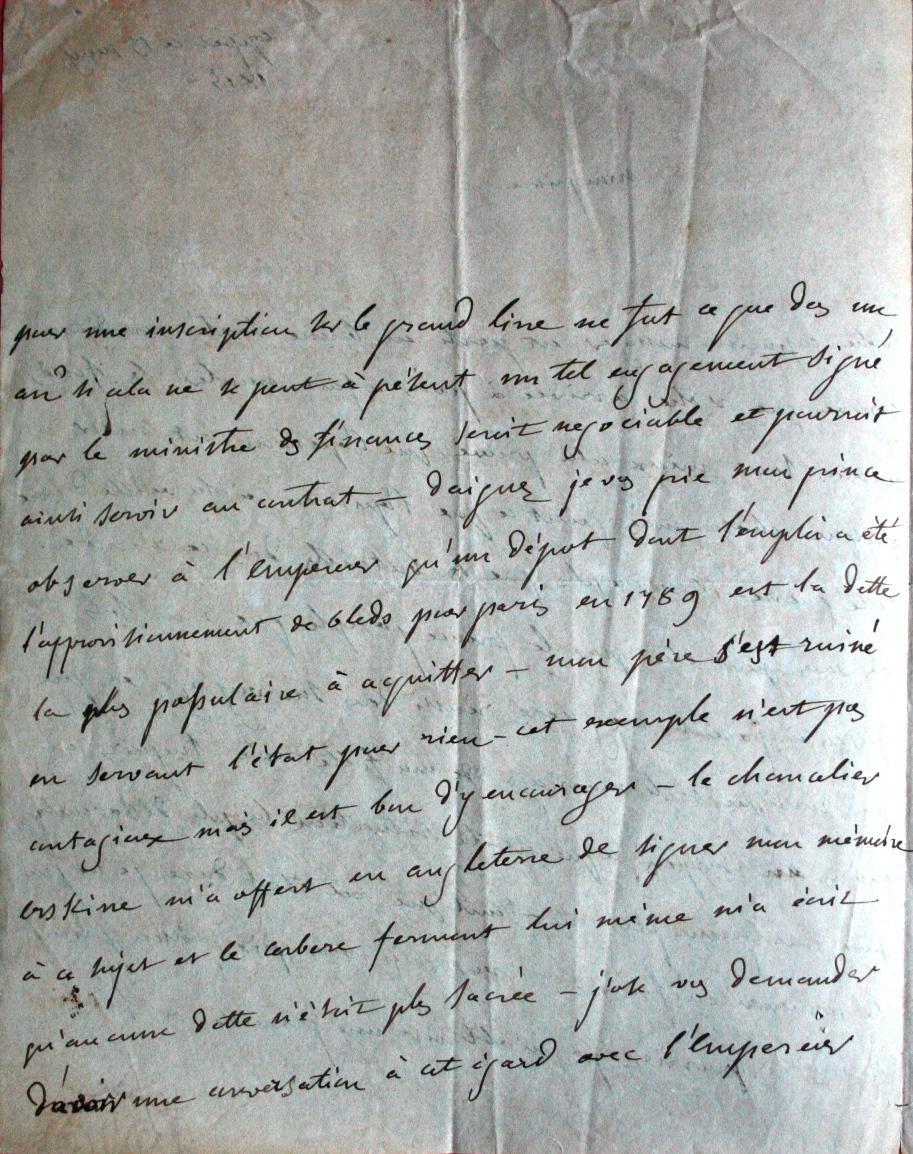 pour une inscription sur le grand livre ne fut ce que ds un
an? si cela ne se peut à présent un tel engagement signé
par le ministre ds finances seroit negociable et pourroit
ainsi servir au contrat – daignez je vs prie mon prince
observer à l'Empereur qu'un dépot dont l'emploi a été
l'approvisionnement de bleds pour paris en 1789 est la dette
la plus populaire à acquitter – mon père s'est ruiné
en servant l'état pour rien – cet exemple n'est pas
contagieux mais il est bon d'y encourager – le chancelier
erskine m'a offert en angleterre de signer mon mémoire
à ce sujet et le cerbere ferment lui même m'a écrit
qu'aucune dette n'étoit plus sacrée – j'ose vs demander
d'avoir une conversation à cet égard avec l'Empereur